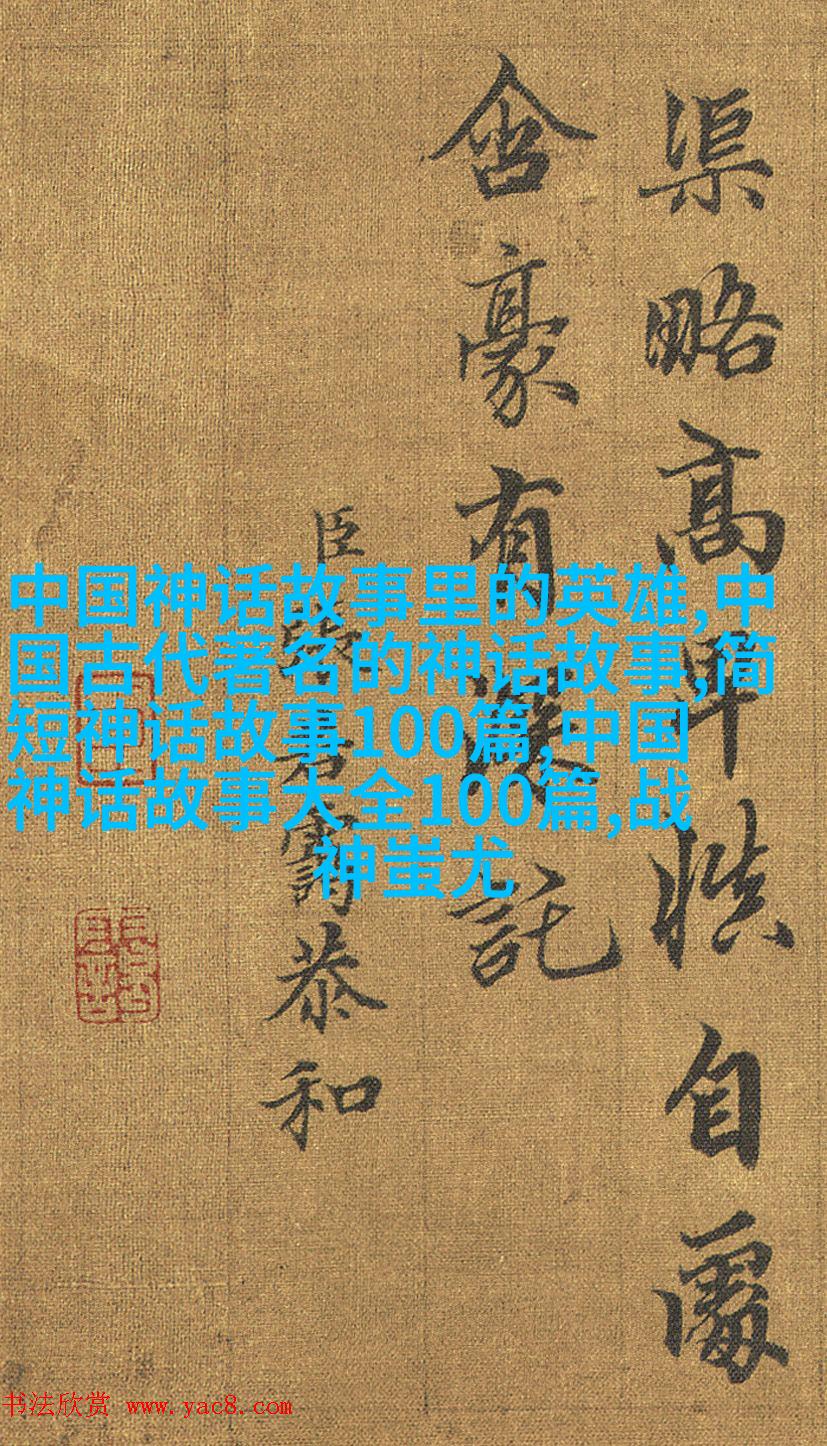 渠略高卑慎自處
含豪有託
臣若恭和
中国神话故事里的英雄,中
国古代著名的神话故事,简
短神话故事100篇,中国
神话故事大全100篇,战
神蚩尤
书法欣赏 www.yac8.com